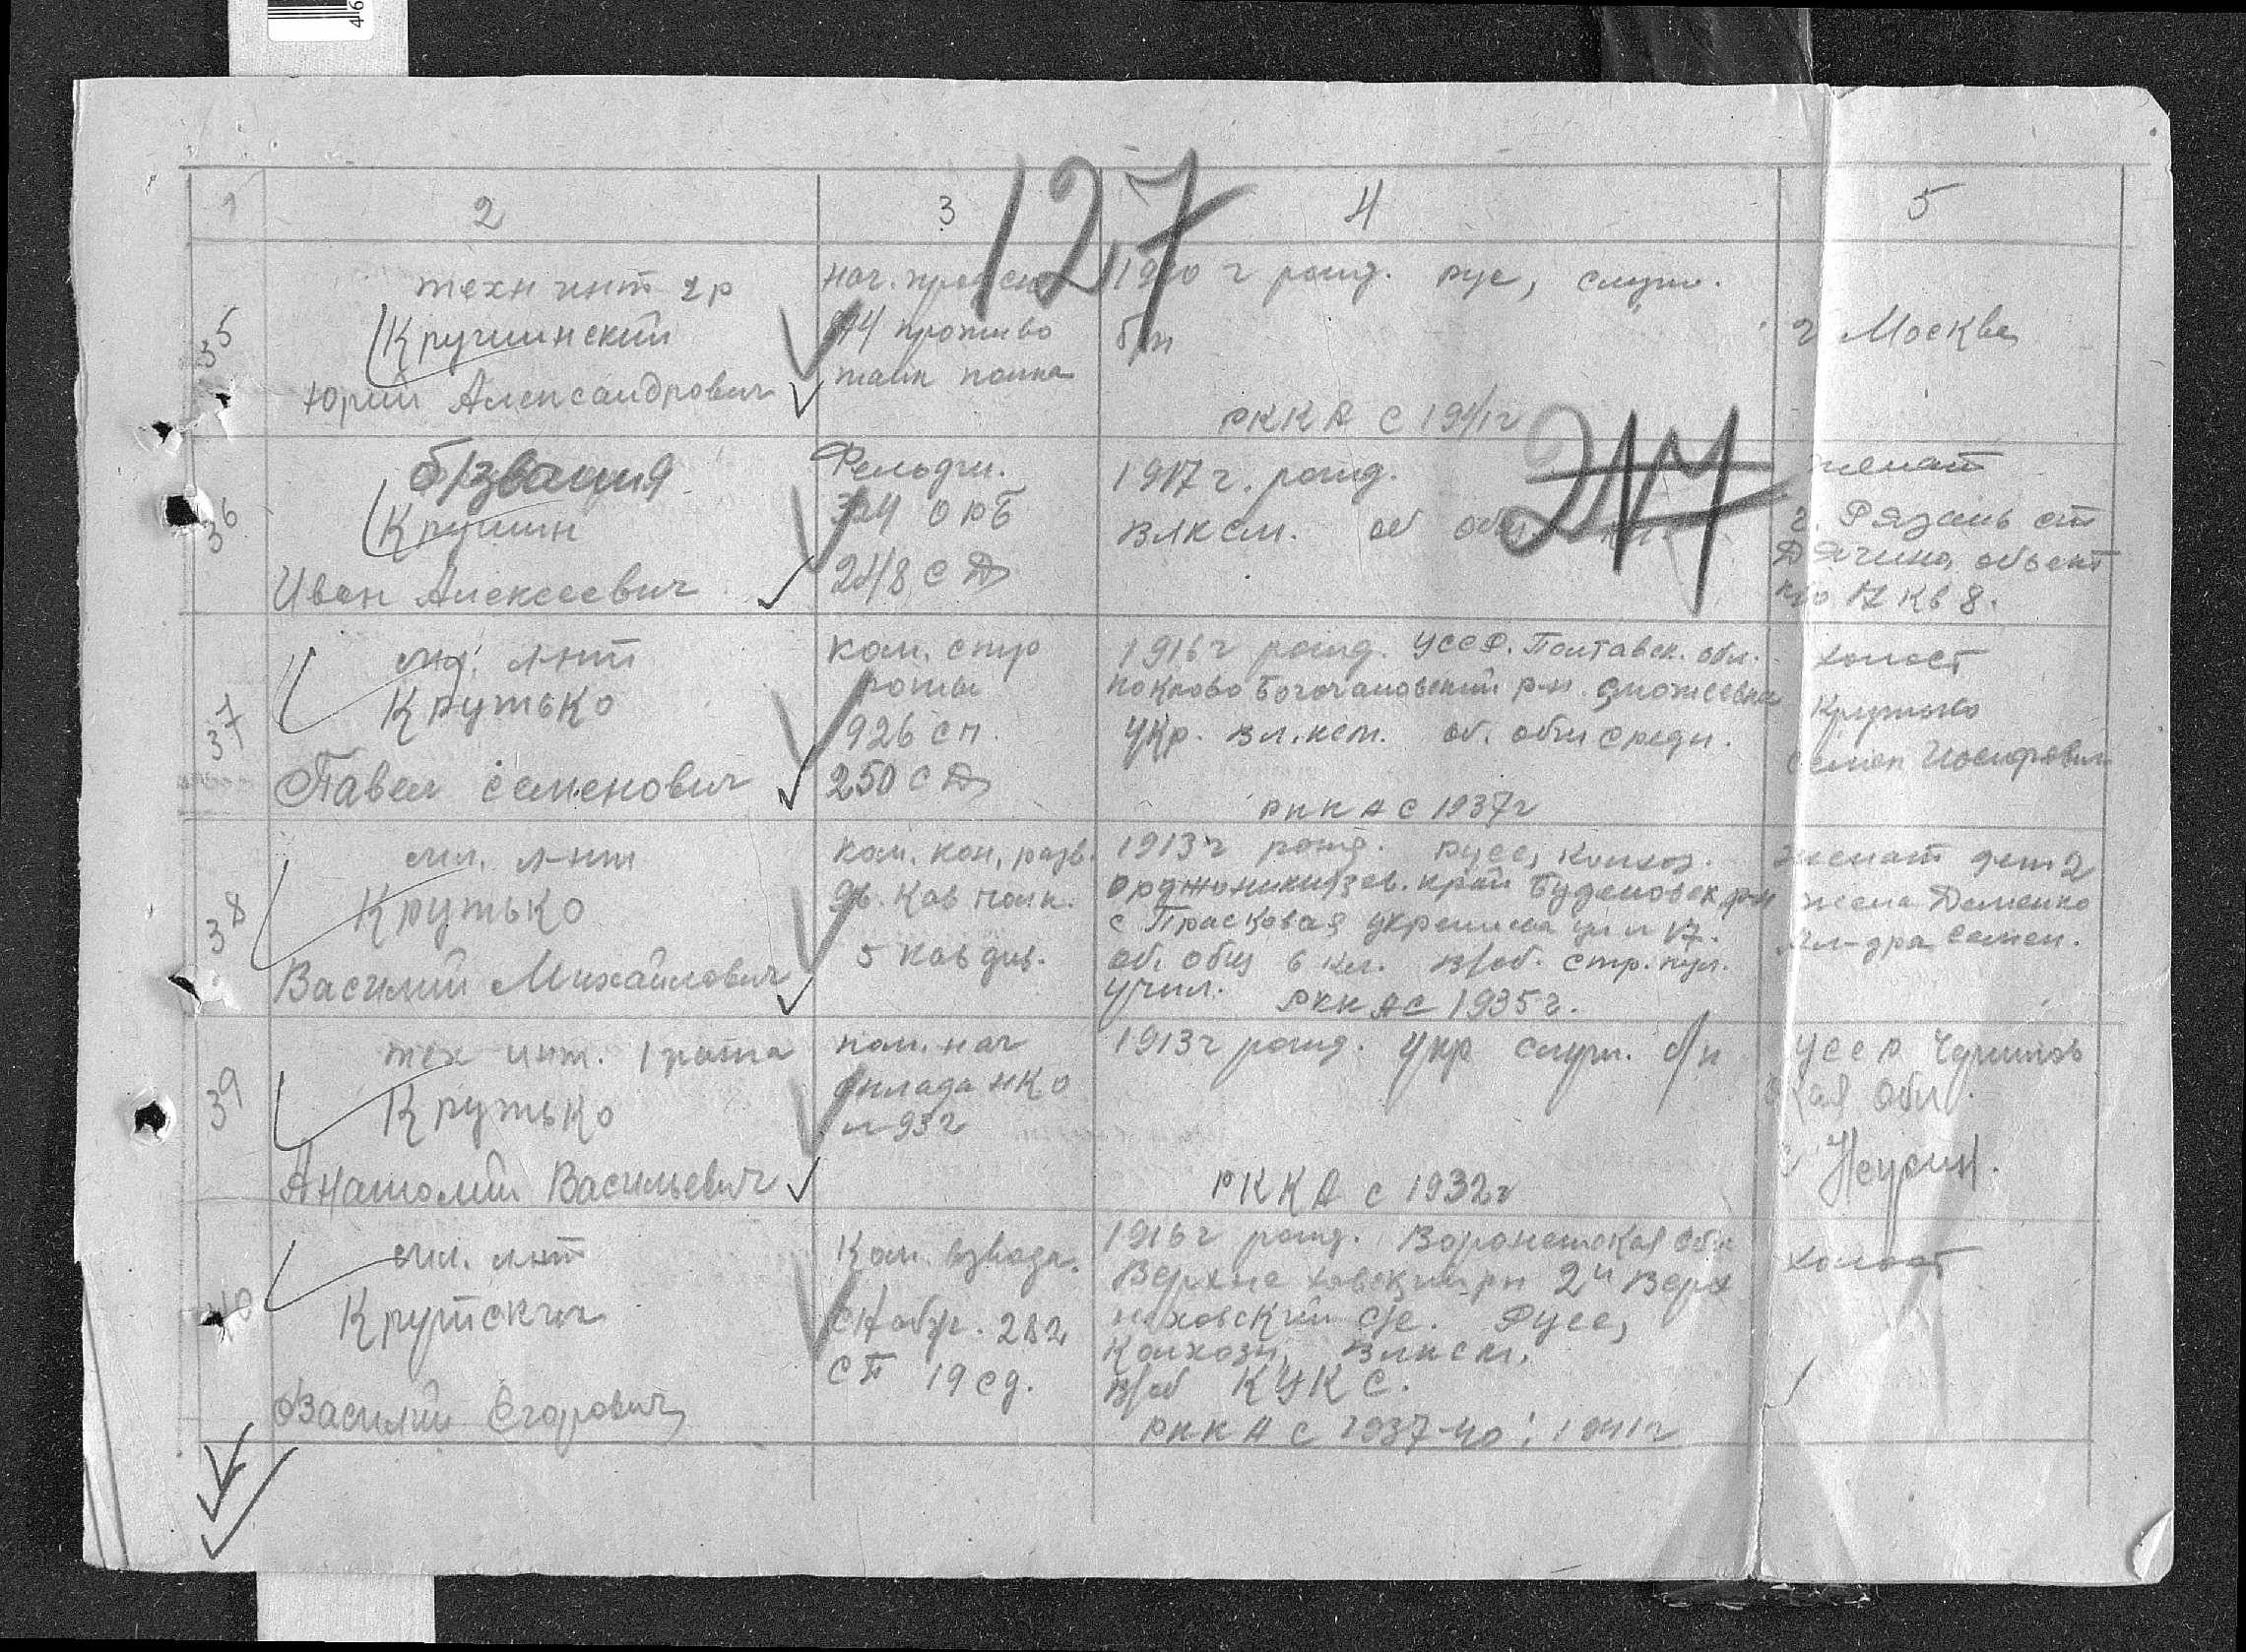 46
127
1 2 3 4 5
35
техн инт 2р
Кручинский
Юрий Александрович
нач. прод сн
противо
танк полка
1910 г рожд. рус, служ.
б/п
РККА с 1941г
г Москва
217
36
б/звания
Крушин
Иван Алексеевич
Фельдш.
ОРБ
248 СД
1917 г. рожд.
ВЛКСМ.
женат
г. Рязань ст
Дягино, объект
17 кв 8.
37
мл. л-нт
Крутько
Павел Семенович
ком. стр
роты
926 сп.
250 СД
1916 г рожд. УССР. Полтавск. обл.
укр. вл.ксм. об. общ средн.
РККА с 1937г
холост
Крутько
Семен Иосифович
38
мл. л-нт
Крутько
Василий Михайлович
ком. кон. разв.
96. Кав полк.
5 кав див.
1913 г рожд. русс, колхоз.
Орджоникидзев. край Буденовск р-н
с Прасковая
об. общ 6 кл. в/об. стр. пул.
учил. РККА с 1935 г.
женат дет 2
жена Доменко
Ал-дра Семен.
39
тех инт. 1 ранга
Крутько
Анатолий Васильевич
пом. нач
склада НКО
1913 г рожд. Укр служ. б/п
РККА с 1932г
УССР Чернигов
ская обл.
40
мл. л-нт
Крутских
Василий Егорович
Ком. взвода.
282
СП 19 сд.
1916 г рожд. Воронежская обл
Верхне хавский рн 2й Верх
нехавский с/с. Русс,
Колхозн, влксм.
в/об КУКС.
РККА с 1937-40; 1941г
холост